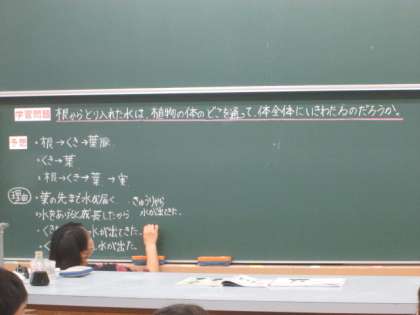 学習問題 根からとり入れた水は、植物の体のどこを通って、体全体にいきわたるのだろうか。
予想 ・根→くき→葉脈
・くき→葉
・根→くき→葉→実
理由 ・葉の先まで水が届く きゅうりから
・水をあげると成長したから 水が出てきた。
・くき 水が出てきた。
・く 水が出た。